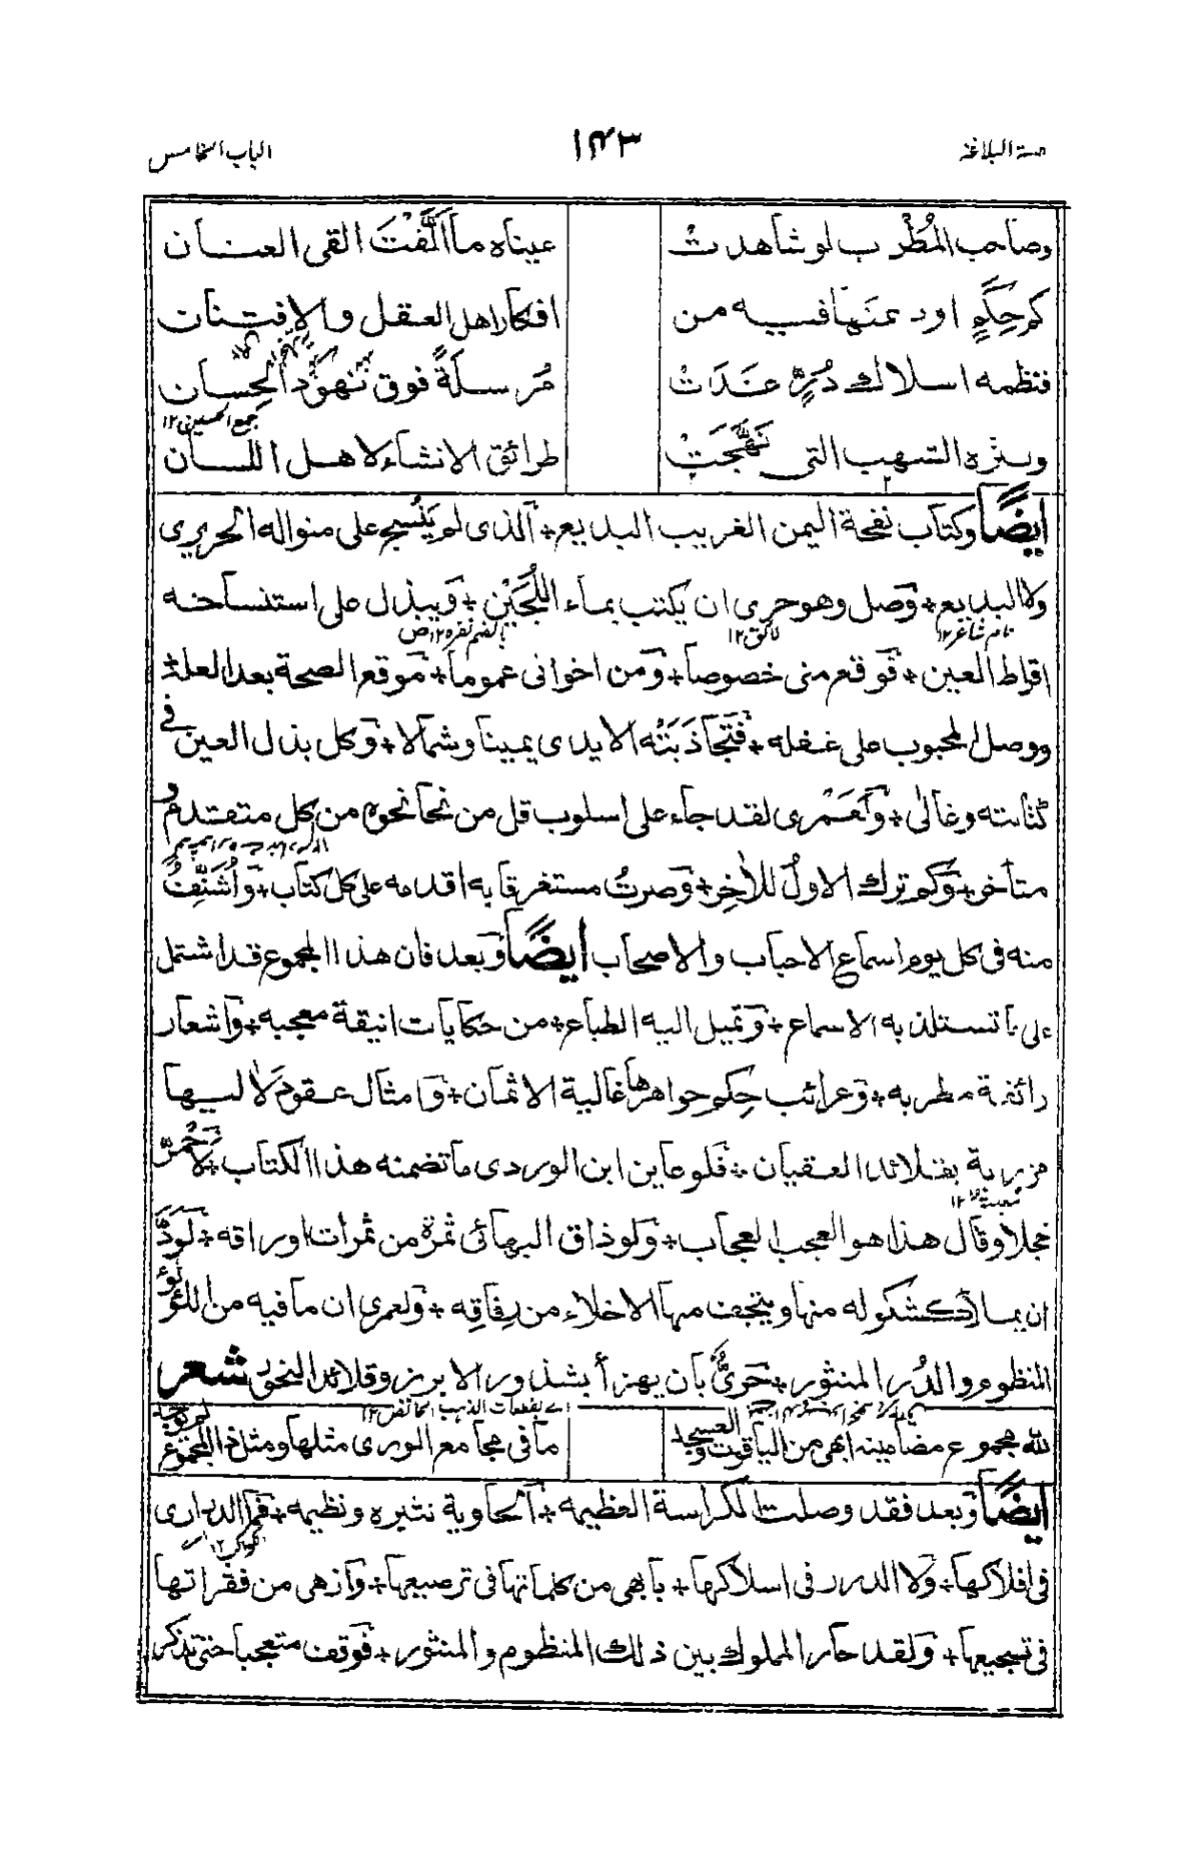 البلاغة ١٤٣ الباب الخامس
وصاحب المُطْرب لو شاهدتْ عيناه ما اَلَّفْتَ القى العنان
كم حِكَمٍ اودعتَها فيه من افكار اهل العقل والافتنان
فنظمه اسلاك دُرٍّ غَدَتْ مُرسلةً فوق نُهُوْد الحِسان
جمع الحسين ١٢
ونثره السهب التى نَهَجَتْ طرائق الانشاء لاهل اللسان
ايضًا وكتاب نفحة اليمن الغريب البديع + الذى لم يَنْسِج على منواله الحريرى
ولا البديع + وَصل وهو حرى ان يكتب بماء اللُّجَيْنِ + وَيبذل على استنساخه
نام شاعر ١٢ لائق ١٢ بالضم نقره ١٢ ص
اقراط العين + فَوقع منى خصوصا + وَمن اخوانى عموما + مَوقع الصحة بعد العلة +
ووصل المحبوب على غفله + فَتَجَاذَبَتْه الايدى يمينا وشمالا + وَكل بذل العين فى
كتابته وغالى + وَلَعَمْرى لقد جاء على اسلوب قل من نحا نحوه من كل متقدم و
متأخر + وَكم ترك الاولُ للاٰخِر + وَصرتُ مستغرقا به اقدمه على كل كتاب + وَاُشَنِّفُ
منه فى كل يوم اسماع الاحباب والاصحاب ايضًا وَبعد فان هذا المجموع قد اشتمل
على ما تستلذ به الاسماع + وَتميل اليه الطباع + من حكايات انيقة معجبه + وَاشعار
رائقة مطربه + وَغرائب حِكم جواهرها غالية الاثمان + وَامثال عقود لَاٰليها
مزرية بقلائد العقيان + فَلو عاين ابن الوردى ما تضمنه هذا الكتاب + لَاَحْمَرَّ
خجلا وقال هذا هو العجب العجاب + وَلو ذاق البهائى ثمرة من ثمرات اوراقه + لَوَدَّ
ان يملأ كشكوله منها ويتحف بها الاخلاء من رِفاقِه + وَلعمرى ان ما فيه من اللؤلؤ
المنظوم والدُر المنثور + حَرِىٌّ بأن يهزأ بشذور الابريز وقلائد النحور شعر
اے بقطعات الذهب الخالص ١٢
لله مجموع مضامينه ابهى من الياقوت والعسجد ما فى مجامع الورى مثلها ومثل ذا المجموع لم يوجد
ايضًا وَبعد فقد وصلت الكراسة العظيمه + اَلحاوية نثيره ونظيمه + فَما الدرارى
كواكب ١٢
فى افلاكها + وَلا الدرر فى اسلاكها + بأبهى من كلماتها فى ترصيعها + وَازهى من فقراتها
فى تسجيعها + وَلقد حار المملوك بين ذلك المنظوم والمنثور + فَوقف متعجبا حتى تذكر